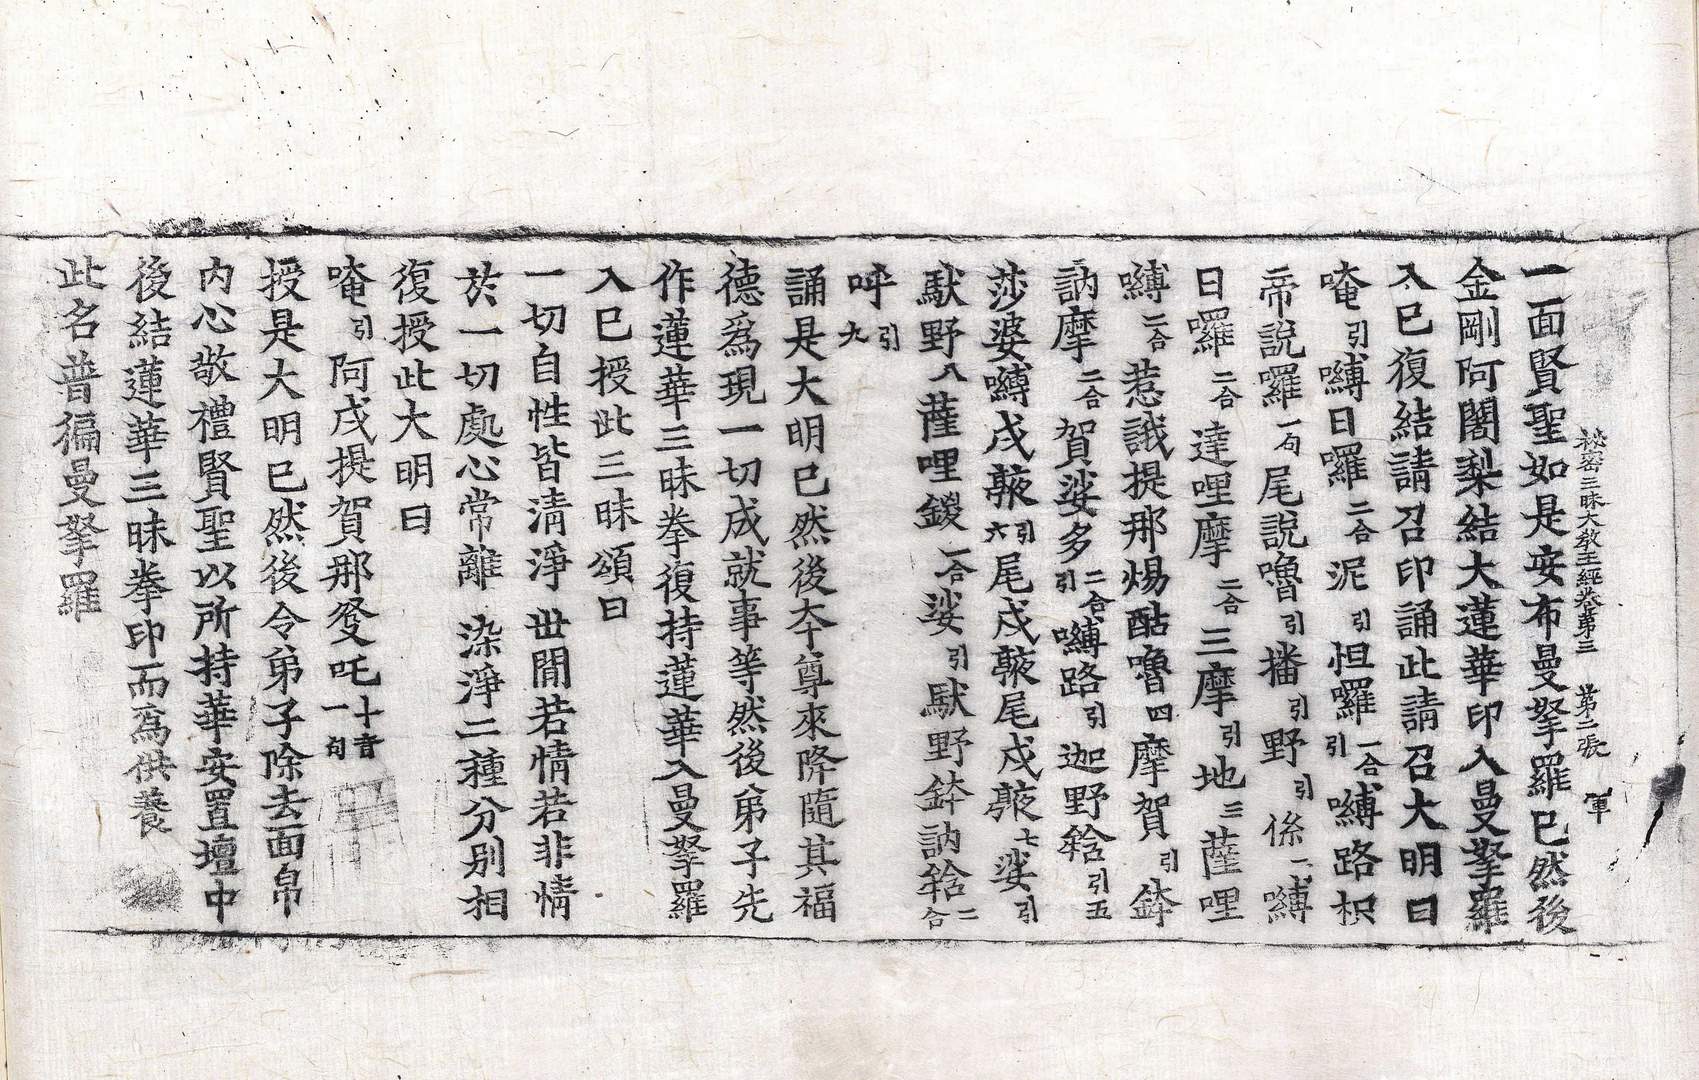 秘密三昧大教王經卷第三 第二張 軍
一面賢聖如是安布曼拏羅已然後
金剛阿闍梨結大蓮華印入曼拏羅
入已復結請召印誦此請召大明曰
唵引嚩日囉二合泥引怛囉二合引嚩路枳
帝說囉一句尾說嚕引播引野引係二嚩
日囉二合達哩摩二合三摩引地三薩哩
嚩二合惹誐提那惕酤嚕四摩賀引鉢
訥摩二合賀娑多二合引嚩路引迦野鎋引五
莎婆嚩戍馱引六尾戍馱尾戍馱七娑引
馱野八薩哩鑁二合娑引馱野鉢訥鎋二合
吽引九
誦是大明已然後本尊來降隨其福
德為現一切成就事等然後弟子先
作蓮華三昧拳復持蓮華入曼拏羅
入已授此三昧頌曰
一切自性皆清淨 世間若情若非情
於一切處心常離 染淨二種分別相
復授此大明曰
唵引阿戍提賀那發吒十音一句
授是大明已然後令弟子除去面帛
內心敬禮賢聖以所持華安置壇中
後結蓮華三昧拳印而為供養
此名普徧曼拏羅